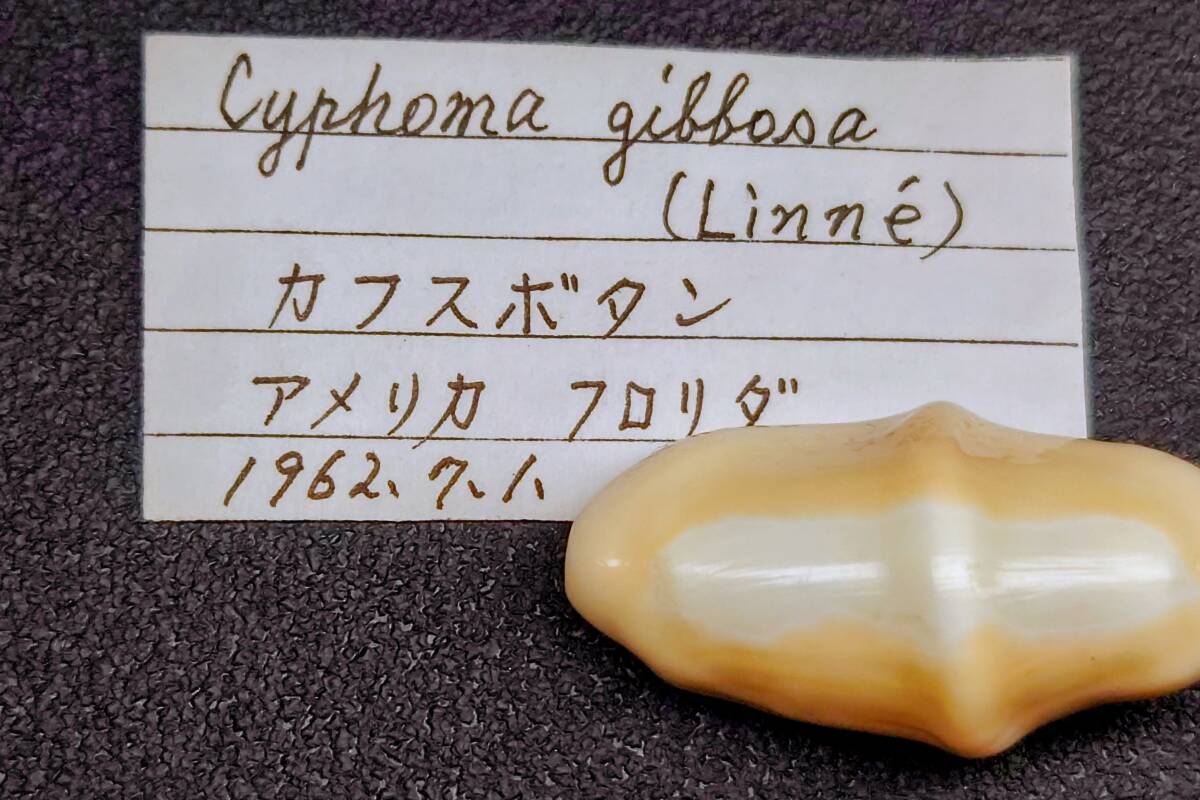 Cyphoma gibbosa
(Linné)
カフスボタン
アメリカ フロリダ
1962、7、1、